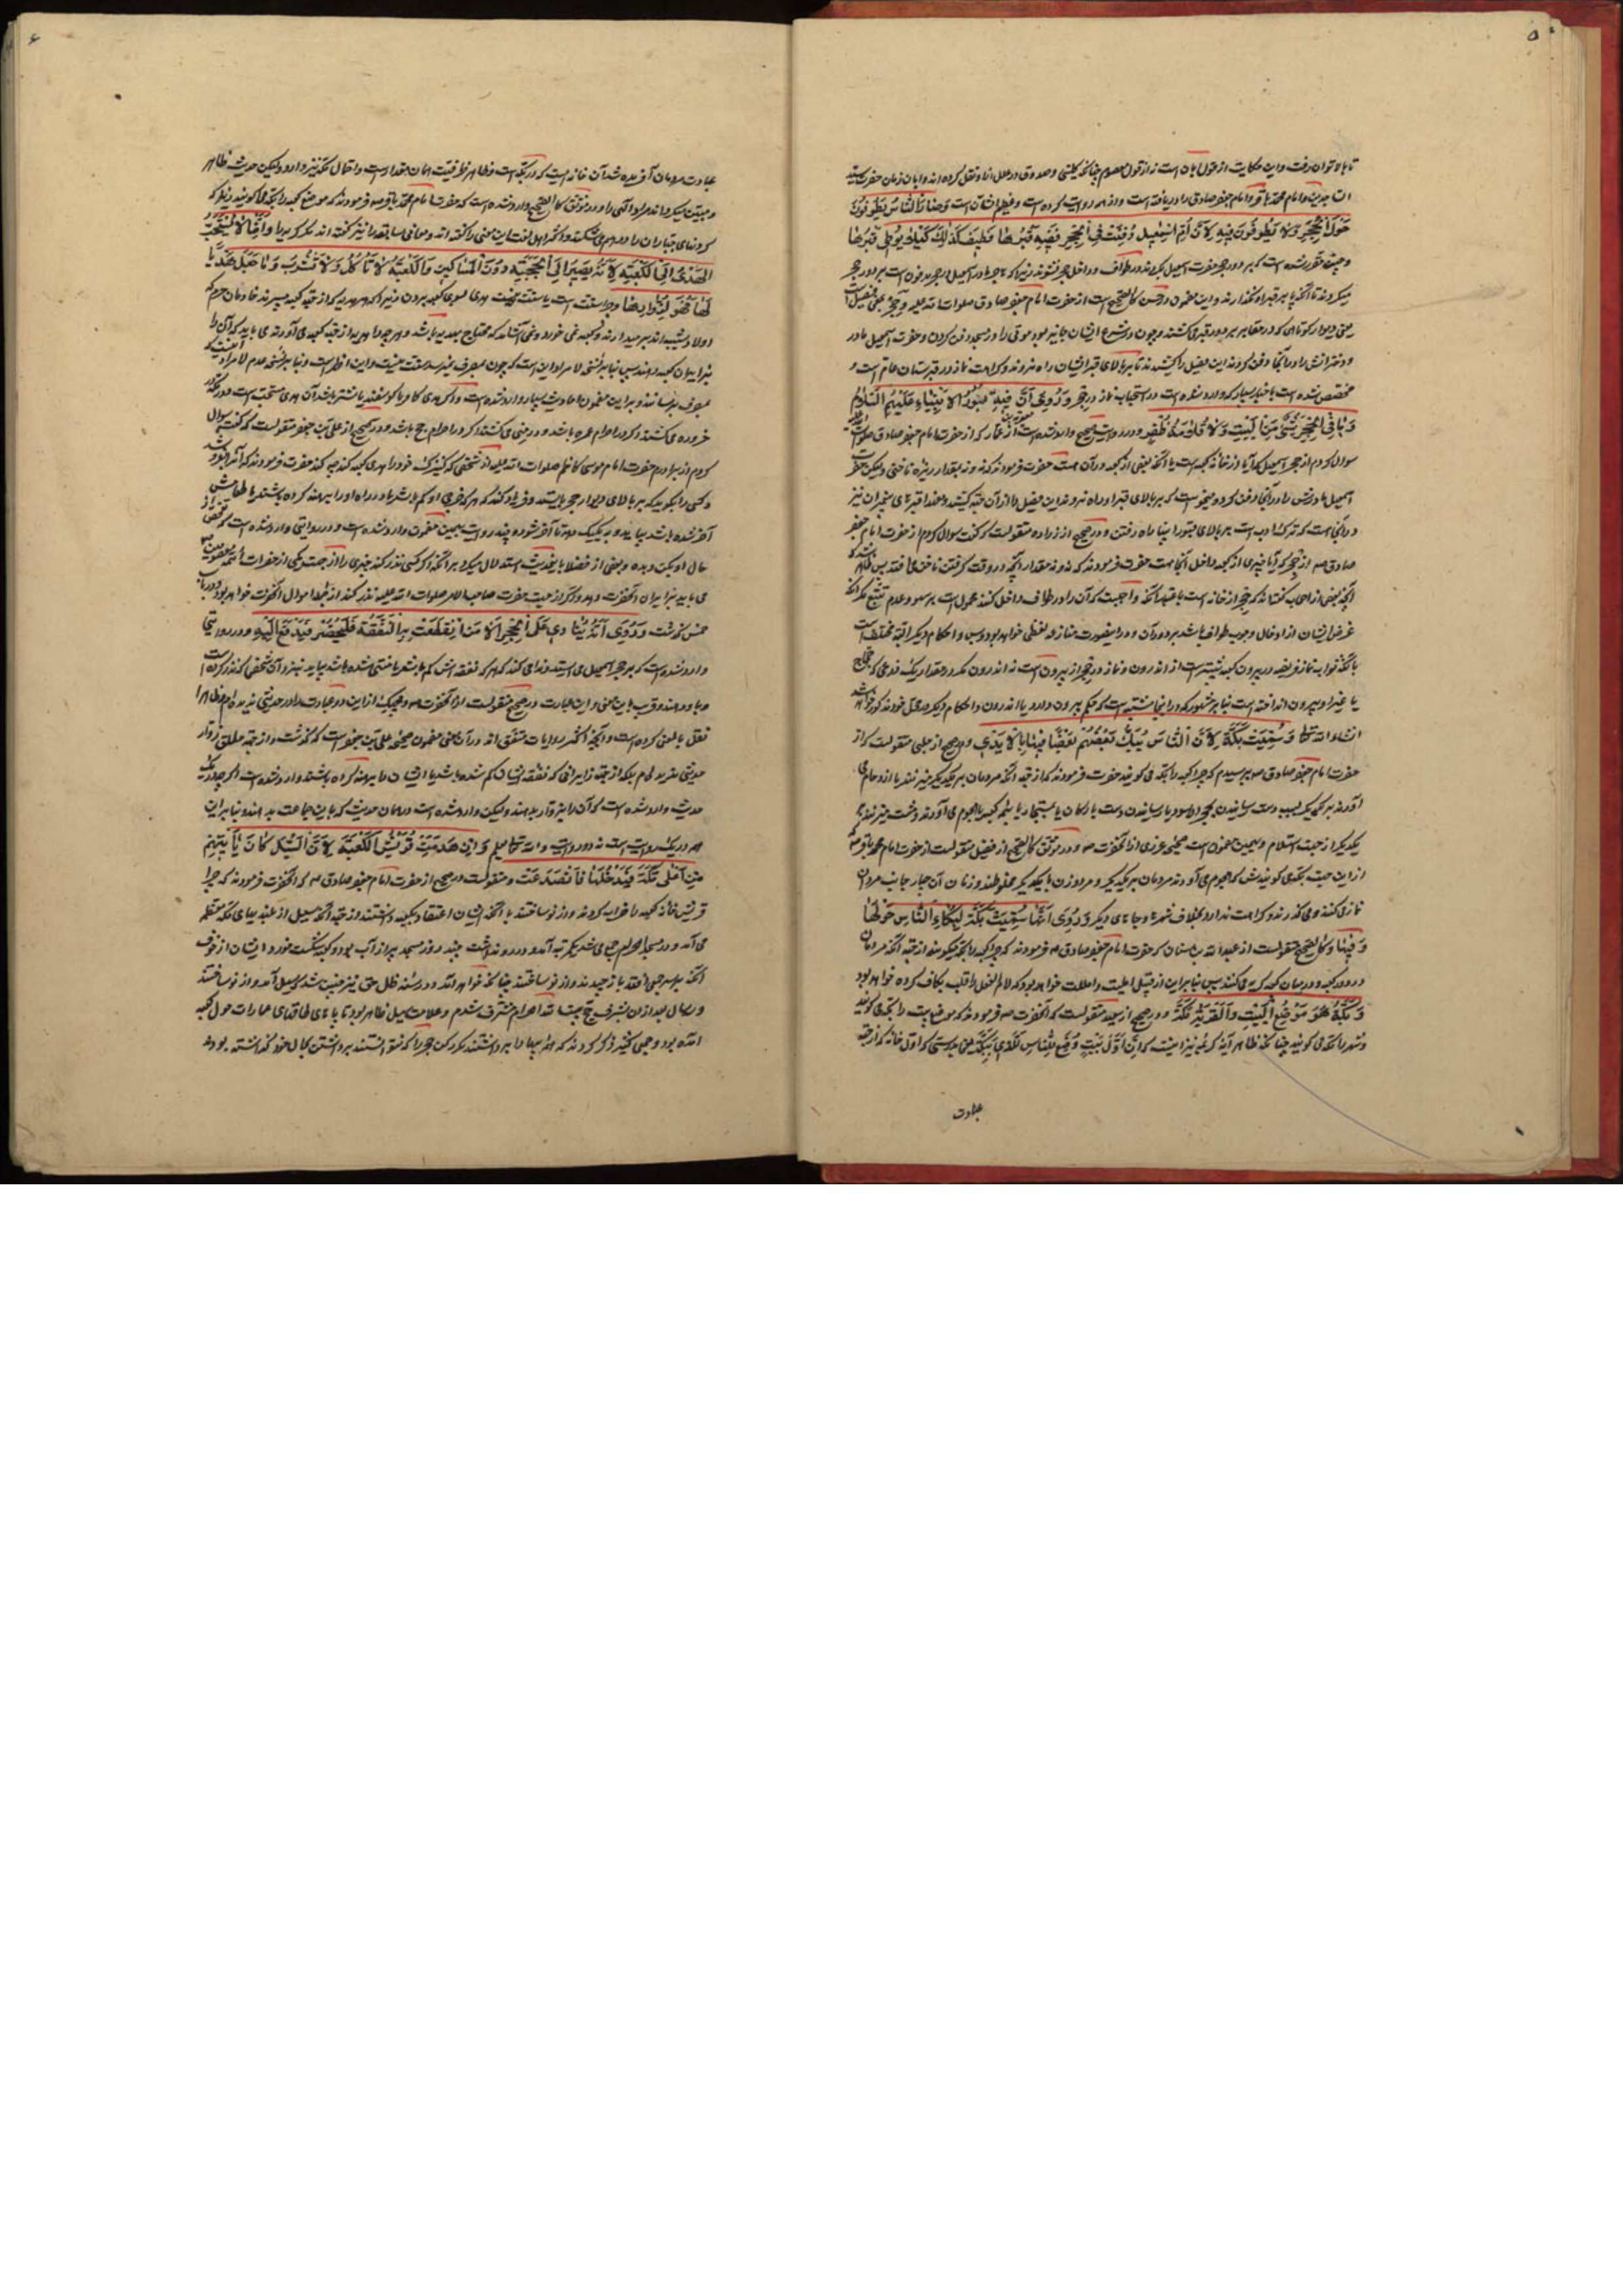 ۵
تا بالا توان رفت و این حکایت از قول ابان است نه از قول معصوم چنانکه کلینی و صدوق در علل از او نقل کرده‌اند و ابان زمان حضرت سید
امام محمد باقر و امام جعفر صادق را دریافته است و از همه روایت کرده است و عظیم الشأن است وَصَارَ النَّاسُ يَطُوفُونَ
حَوْلَ الْحِجْرِ وَلَا يَطُوفُونَ فِيهِ لِأَنَّ أُمَّ إِسْمٰعِيلَ دُفِنَتْ فِي الْحِجْرِ فَفِيهِ قَبْرُهَا فَطِيفَ كَذٰلِكَ كَيْلَا يُوطَى قَبْرُهَا
و چنین مقرر شده است که بر دور حجر حضرت اسمعیل بگردند در طواف و داخل حجر نشوند زیرا که هاجر مادر اسمعیل در حجر مدفون است بر دور حجر
میکردند تا آنکه پا بر قبر او نگذارند و این مضمون در حسن کالصحیح است از حضرت امام جعفر صادق صلوات الله علیه
یعنی دیوار کوتاهی که در مقابر بر دور قبر می‌کشند و چون در شرع ایشان جایز بود موتی را در مسجد دفن کردن و حضرت اسمعیل مادر
و دخترانش را در آنجا دفن کردند این حصار را کشیدند تا بر بالای قبر ایشان راه نروند و کراهت نماز در قبرستان عام است و
مخصص شده است باخبار بسیار که وارد شده است در استحباب نماز در حجر وَرُوِيَ أَنَّ فِيهِ قُبُورَ الْأَنْبِيَاءِ عَلَيْهِمُ السَّلَامُ
وَمَا فِي الْحِجْرِ شَيْءٌ مِنَ الْبَيْتِ وَلَا قُلَامَةُ ظُفُرٍ و در روایت صحیح وارد شده است از معویة بن عمار که از حضرت امام جعفر صادق صلوات
سؤال کردم از حجر اسمعیل که آیا از خانه کعبه است یا آنکه بعضی از کعبه در آن هست حضرت فرمودند که نه و نه بقدر ریزه ناخنی و لیکن حضرت
اسمعیل مادرش را در آنجا دفن کرد و نخواست که بر بالای قبر او راه روند این حصار را از آن جهة کشید و در آنجا قبرهای پیغمبران نیز
و در آنجا است که ترک ادب است بر بالای قبور انبیا راه رفتن و در صحیح از زراره منقولست که گفت سؤال کردم از حضرت امام جعفر
صادق ص از حجر که آیا چیزی از کعبه داخل آنجا هست حضرت فرمودند که نه و نه مقدار آنچه در وقت گرفتن ناخن می‌افتد پس ظاهر شد که
آنچه بعضی از اصحاب گفته‌اند که حجر از خانه است باعتبار آنکه واجبست که آن را در طواف داخل کنند محمول است بر سهو و عدم تتبع مگر آنکه
غرض ایشان از ادخال وجوب طواف باشد بر دور آن و در اینصورت منازعه لفظی خواهد بود و بس و احکام دیگر البته مختلف است
با آنکه ثواب نماز فریضه در بیرون کعبه بیشتر است از اندرون و نماز در حجر از بیرون است نه اندرون مگر در مقدار یک ذرعی که حجاج
یا غیر او بیرون انداخته است بنا بر مشهور که در اینجا مشتبه است که حکم بیرون دارد یا اندرون و احکام دیگر در محل خود مذکور خواهد شد
انشاء الله تعالی وَسُمِّيَتْ بَكَّةَ لِأَنَّ النَّاسَ يَبُكُّ بَعْضُهُمْ بَعْضًا فِيهَا بِالْأَيْدِي و در صحیح از حلبی منقولست که از
حضرت امام جعفر صادق ص پرسیدم که چرا کعبه را بکه می‌گویند حضرت فرمودند که از جهة آنکه مردمان بر یکدیگر میزنند یا ازدحام می
آورند بر یکدیگر بسبب دست رسانیدن بحجر الاسود یا رسانیدن دست بارکان یا بمستجار یا بهمه کعبه هجوم می‌آورند و دست میزنند بر
یکدیگر از جهة استلام و بهمین مضمون است صحیحه عزرمی از آنحضرت ص و در موثق کالصحیح از فضیل منقولست از حضرت امام محمد باقر ص
از این جهت بکه می‌گویندش که هجوم می‌آورند مردمان بر یکدیگر و مرد و زن با یکدیگر مخلوطند و زنان آن در چهار جانب مردان
نماز می‌کنند و می‌گذرند و کراهت ندارد بخلاف شهرها و جاهای دیگر وَرُوِيَ أَنَّهَا سُمِّيَتْ بَكَّةَ لِبُكَاءِ النَّاسِ حَوْلَهَا
وَفِيهَا و کالصحیح منقولست از عبد الله بن سنان که حضرت امام جعفر صادق ص فرمودند که چرا کعبه را بکه میگویند از جهة آنکه مردمان
در دور کعبه و در میان کعبه گریه می‌کنند پس بنا بر این از قبیل املیت و امللت خواهد بود که لام الفعل را قلب بکاف کرده خواهد بود
وَبَكَّةُ هُوَ مَوْضِعُ الْبَيْتِ وَالْقَرْيَةُ مَكَّةُ و در صحیح از سعید منقولست که آنحضرت ص فرمودند که موضع بیت را بکه می‌گویند
و شهر را مکه می‌گویند چنانکه ظاهر آیه کریمه نیز اینست که إِنَّ أَوَّلَ بَيْتٍ وُضِعَ لِلنَّاسِ لَلَّذِي بِبَكَّةَ یعنی بدرستی که اول خانه که از جهة
عبادت
۶
عبادت مردمان آفریده شد آن خانه‌ایست که در بکه است و ظاهر ظرفیت همان مقدار است و احتمال مکه نیز دارد و لیکن حدیث ظاهر
و مبین میگرداند مراد الهی را و در موثق کالصحیح وارد شده است که حضرت امام محمد باقر ص فرمودند که موضع کعبه را بکه می‌گویند زیرا که
گردنهای جباران را در هم می‌شکند و اکثر اهل لغت این معنی را گفته‌اند و معانی سابقه را نیز گفته‌اند وَإِنَّمَا لَا يُسْتَحَبُّ
الْهَدْيُ إِلَى الْكَعْبَةِ لِأَنَّهُ يَصِيرُ إِلَى الْحَجَبَةِ دُونَ الْمَسَاكِينِ وَالْكَعْبَةُ لَا تَأْكُلُ وَلَا تَشْرَبُ وَمَا جُعِلَ هَدْيًا
لَهَا فَهُوَ لِزُوَّارِهَا و چرا سنت است یا سنت نیست هدی بسوی کعبه بردن زیرا که هر هدیه که از جهة کعبه میبرند خادمان حرم که
اولاد شیبه‌اند بر میدارند و کعبه نمی‌خورد و نمی‌آشامد که محتاج بهدیه باشد و هر چه را هدیه از جهة کعبه می‌آورند می‌باید که آن را
بزایران کعبه دهند پس بنا بر نسخه لا مراد این است که چون بمصرف نمیرسد سنت نیست و این اظهر است و بنا بر نسخه عدم لا مراد
بمصرف برسانند و بر این مضمون احادیث بسیار وارد شده است و اگر هدی گاو یا گوسفند یا شتر باشد آن هدی مستحب است و در مکه
خروره می‌کشند اگر در احرام عمره باشد و در منی می‌کشند اگر در احرام حج باشد و در صحیح از علی بن جعفر منقولست که گفت سؤال
کردم از برادرم حضرت امام موسی کاظم صلوات الله علیه از شخصی که کنیزک خود را هدی کعبه کند چه کند حضرت فرمودند که
و کسی را بگوید که بر بالای دیوار حجر بایستد و فریاد کند که هر که خرجی او کم باشد یا در راه او را برهنه کرده باشند یا طعامش
آخر شده باشد بیاید و به یکیک دهد تا آخر شود و چند روایت بهمین مضمون وارد شده است و در روایتی وارد شده است که
حال او یک دیده و بعضی از فضلا باینحدیث استدلال میکرد بر آنکه اگر کسی نذر کند چیزی را از جهت یکی از حضرات ائمه معصومین ص
می‌باید بزایران آنحضرت دهد و اگر از جهت حضرت صاحب الامر صلوات الله علیه نذر کند از جمله اموال آنحضرت خواهد بود و در باب
خمس گذشت وَرُوِيَ أَنَّهُ يُنَادِي عَلَى الْحِجْرِ أَلَا مَنِ انْقَطَعَتْ بِهِ النَّفَقَةُ فَلْيَحْضُرْ فَيُدْفَعُ إِلَيْهِ و در روایتی
وارد شده است که بر حجر اسمعیل می‌ایستد و ندا می‌کند که هر که نفقه‌اش کم باشد یا منتهی شده باشد بیاید نزد آن شخص که نذر کرده است
و باو دهند و قریب باین معنی و این عبارت در صحیح منقولست از آنحضرت ص و هیچیک از این دو عبارت را در حدیثی ندیده‌ام و ظاهرا
نقل بالمعنی کرده است و آنچه اکثر روایات متفق‌اند در آن همین مضمون صحیحه علی بن جعفر است که گذشت و از جهة مطلق زوار
حدیثی ندیده‌ام بلکه از جهة زایرانی که نفقه ایشان کم شده باشد یا ایشان را برهنه کرده باشند وارد شده است اگر چه در یک
حدیث وارد شده است که آن را بزوار بدهند و لیکن وارد شده است در همان حدیث که باین جماعت بدهند و بنا بر این
هر دو یک روایت است نه دو روایت و الله تعالی یعلم وَإِنَّمَا هَدَمَتْ قُرَيْشٌ الْكَعْبَةَ لِأَنَّ السَّيْلَ كَانَ يَأْتِيهِمْ
مِنْ أَعْلَى مَكَّةَ فَيَدْخُلُهَا فَانْصَدَعَتْ و منقولست در صحیح از حضرت امام جعفر صادق ص که آنحضرت فرمودند که چرا
قریش خانه کعبه را خراب کردند و از نو ساختند با آنکه ایشان اعتقاد بکعبه داشتند از جهة آنکه سیل از بلندیهای مکه معظمه
می‌آمد و در مسجد الحرام جمع می‌شد در روز مسجد پر از آب بود و کعبه شکست خورد و ایشان از خوف
آنکه مبادا بیفتد باز چیدند و از نو ساختند چنانکه خواهد آمد و در سنه ظل حق نیز چنین شد که سیل آمد و از نو ساختند
و در سال بعد از آن بشرف حج بیت الله الحرام مشرف شدم و علامت سیل ظاهر بود تا پا های طاقهای عمارات حول کعبه
آمده بود و جمعی کثیر ذکر کردند که همه بناها را برداشتند مگر رکن حجر را که نتوانستند برداشتن بحال خود گذاشته بودند